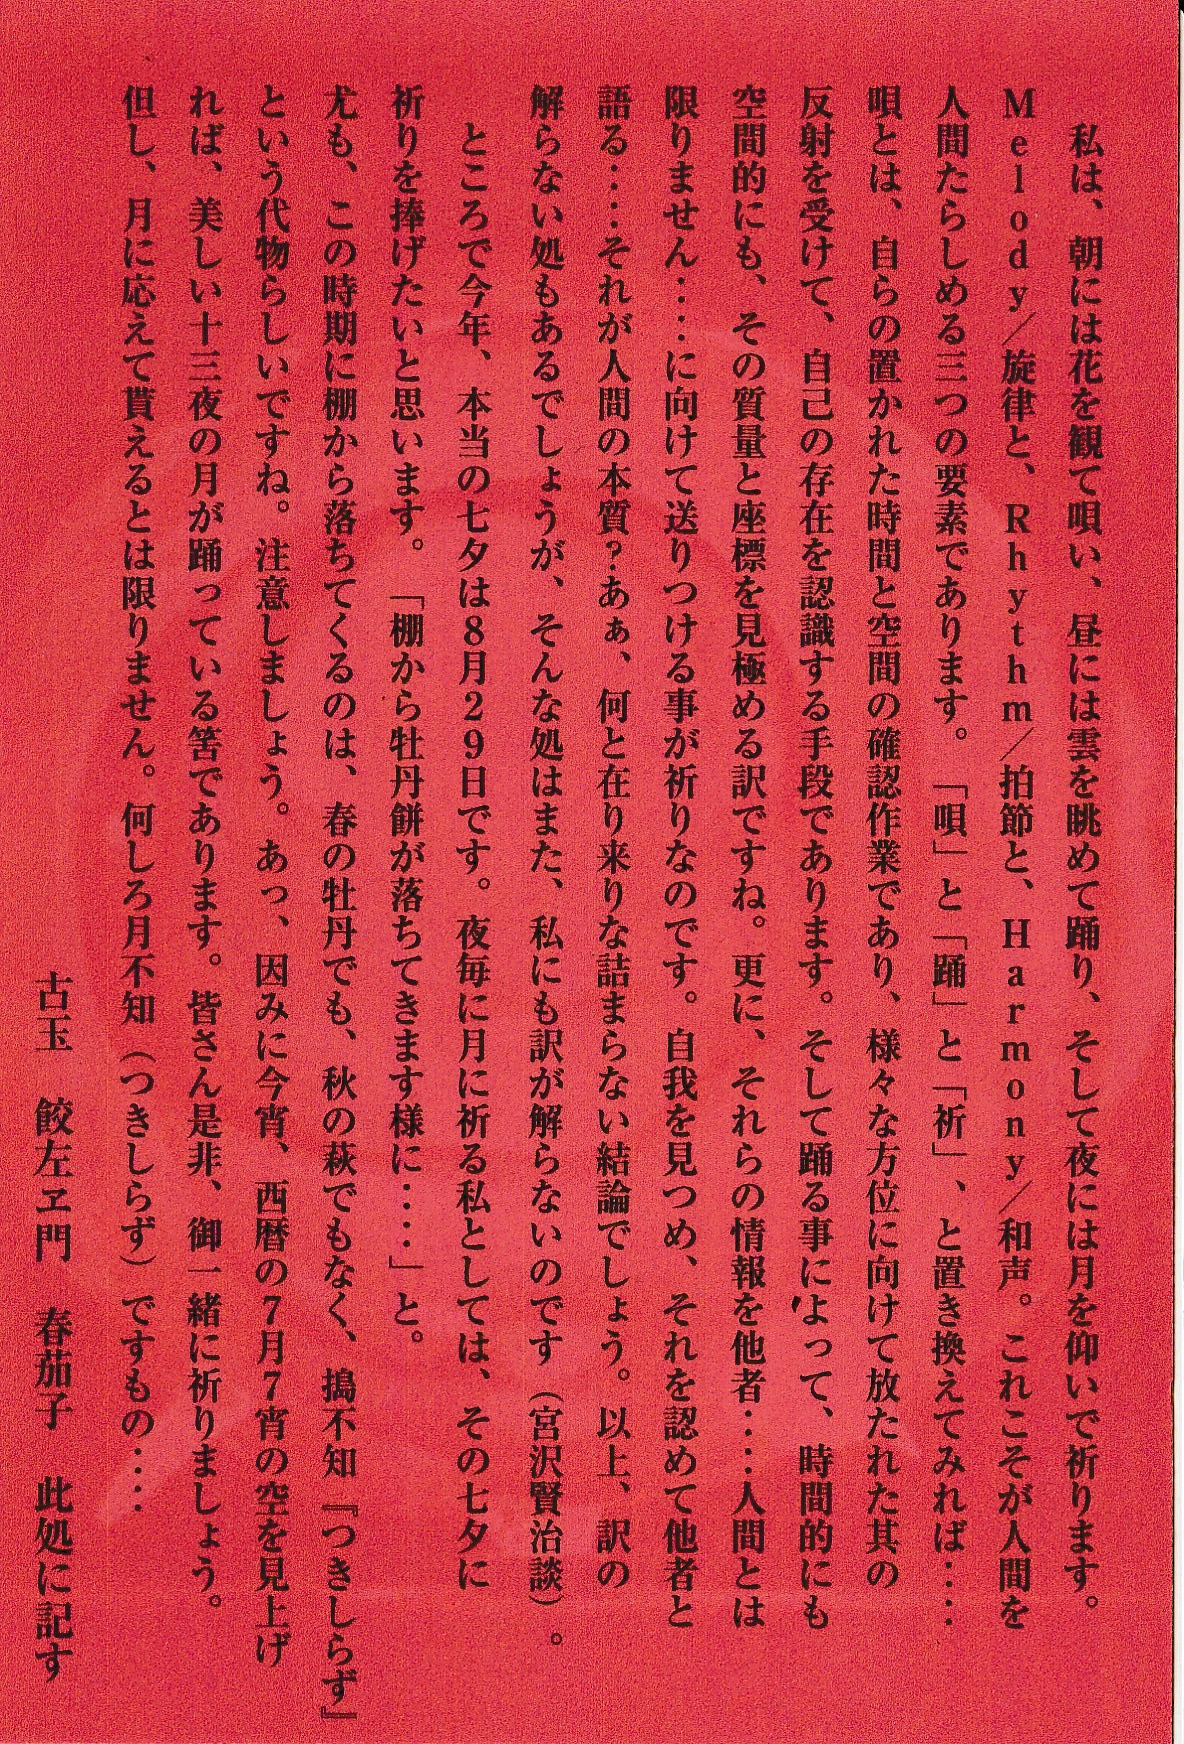 私は、朝には花を観て唄い、昼には雲を眺めて踊り、そして夜には月を仰いで祈ります。
Ｍｅｌｏｄｙ／旋律と、Ｒｈｙｔｈｍ／拍節と、Ｈａｒｍｏｎｙ／和声。これこそが人間を
人間たらしめる三つの要素であります。「唄」と「踊」と「祈」、と置き換えてみれば‥‥
唄とは、自らの置かれた時間と空間の確認作業であり、様々な方位に向けて放たれた其の
反射を受けて、自己の存在を認識する手段であります。そして踊る事によって、時間的にも
空間的にも、その質量と座標を見極める訳ですね。更に、それらの情報を他者‥‥人間とは
限りません‥‥に向けて送りつける事が祈りなのです。自我を見つめ、それを認めて他者と
語る‥‥それが人間の本質？あぁ、何と在り来りな詰まらない結論でしょう。以上、訳の
解らない処もあるでしょうが、そんな処はまた、私にも訳が解らないのです（宮沢賢治談）。
　ところで今年、本当の七夕は８月２９日です。夜毎に月に祈る私としては、その七夕に
祈りを捧げたいと思います。「棚から牡丹餅が落ちてきます様に‥‥」と。
尤も、この時期に棚から落ちてくるのは、春の牡丹でも、秋の萩でもなく、搗不知『つきしらず』
という代物らしいですね。注意しましょう。あっ、因みに今宵、西暦の７月７宵の空を見上げ
れば、美しい十三夜の月が踊っている筈であります。皆さん是非、御一緒に祈りましょう。
但し、月に応えて貰えるとは限りません。何しろ月不知（つきしらず）ですもの‥‥
古玉　餃左ヱ門　春茄子　此処に記す